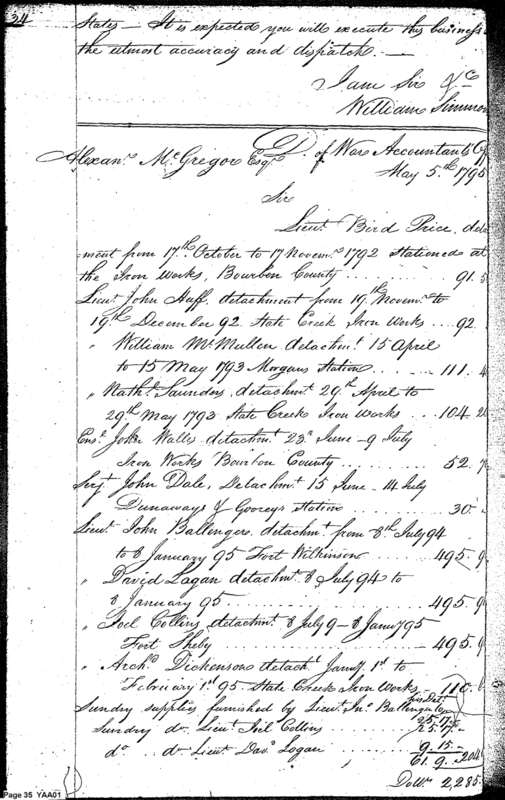 24
States — It is expected you will execute this business
the utmost accuracy and dispatch. —
I am Sir &c
William Simmon
D. of War Accountants
Alexanr. McGregor Esqr.
May 5.th 1795
Sir
Lieut. Bird Price, deta
=ment from 17th. October to 17 Novemr. 1792 Stationed at
the Iron Works, Bourbon County . . . . . . . . 91.
Lieut. John Haff, detachment from 19th. Novemr. to
19th. December 92. State Creek Iron Works . . . 92.
" William McMullen detachmt. 15 April
to 15 May 1793 Morgans Station . . . . . . . 111.
" Nathl. Saunders, detachmt. 29th. April to
29th May 1793 State Creek Iron Works . . . 104.
Ens. John Walls detachmt. 23d. June - 9 July
Iron Works Bourbon County . . . . . . . . . 52.
Serjt. John Dale, Detachmt. 15 June - 14 July
Dunaways & Gooreys Station . . . . . . . . . 30.
Lieut. John Ballenger, detachmt. from 8th. July 94
to 8 January 95 Fort Wilkinson . . . . . . 495.
" David Logan detachmt. 8 July 94 to
8 January 95 . . . . . . . . . . . . . . 495.
" Joel Collins, detachmt. 8 July 9 - 8 Janury 95
Fort Shelby . . . . . . . . . . . . . . . 495.
" Archd. Dickenson detacht. Janry. 1st to
February 1st. 95 State Creek Iron Works 110.
Sundry supplies furnished by Lieut. Jno. Ballenger
25.17.
Sundry do. Lieut. Joel Collins 25.17.-
do. do Lieut. Davd. Logan 9.15.-
61. 9. 204
Dollrs. 2,285.
Page 35 YAA01